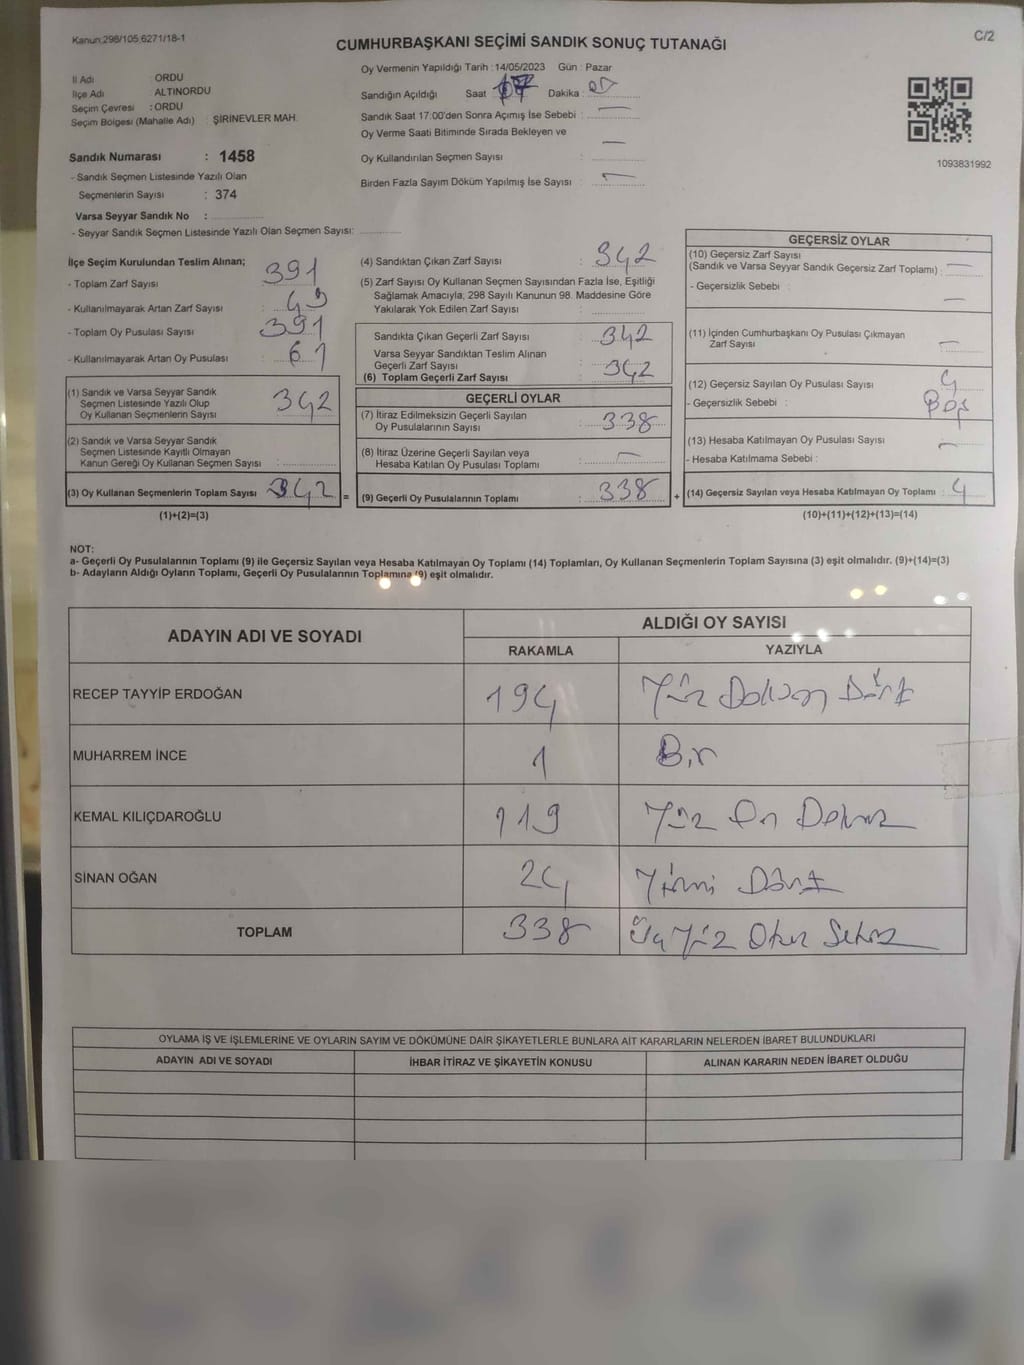 Kanun:298/105,6271/18-1
CUMHURBAŞKANI SEÇİMİ SANDIK SONUÇ TUTANAĞI
C/2
Oy Vermenin Yapıldığı Tarih : 14/05/2023 Gün : Pazar
İl Adı ORDU
İlçe Adı ALTINORDU
Seçim Çevresi : ORDU
Seçim Bölgesi (Mahalle Adı) : ŞİRİNEVLER MAH.
Sandığın Açıldığı Saat 17 Dakika :
Sandık Saat 17:00'den Sonra Açımış İse Sebebi : —
Oy Verme Saati Bitiminde Sırada Bekleyen ve
Oy Kullandırılan Seçmen Sayısı : —
Birden Fazla Sayım Döküm Yapılmış İse Sayısı : —
1093831992
Sandık Numarası : 1458
- Sandık Seçmen Listesinde Yazılı Olan
Seçmenlerin Sayısı : 374
Varsa Seyyar Sandık No :
- Seyyar Sandık Seçmen Listesinde Yazılı Olan Seçmen Sayısı:
İlçe Seçim Kurulundan Teslim Alınan;
- Toplam Zarf Sayısı : 391
- Kullanılmayarak Artan Zarf Sayısı : 49
- Toplam Oy Pusulası Sayısı : 391
- Kullanılmayarak Artan Oy Pusulası : 61
(1) Sandık ve Varsa Seyyar Sandık
Seçmen Listesinde Yazılı Olup
Oy Kullanan Seçmenlerin Sayısı : 342
(2) Sandık ve Varsa Seyyar Sandık
Seçmen Listesinde Kayıtlı Olmayan
Kanun Gereği Oy Kullanan Seçmen Sayısı :
(3) Oy Kullanan Seçmenlerin Toplam Sayısı : 342 =
(1)+(2)=(3)
(4) Sandıktan Çıkan Zarf Sayısı : 342
(5) Zarf Sayısı Oy Kullanan Seçmen Sayısından Fazla İse, Eşitliği
Sağlamak Amacıyla, 298 Sayılı Kanunun 98. Maddesine Göre
Yakılarak Yok Edilen Zarf Sayısı :
Sandıkta Çıkan Geçerli Zarf Sayısı : 342
Varsa Seyyar Sandıktan Teslim Alınan
Geçerli Zarf Sayısı :
(6) Toplam Geçerli Zarf Sayısı : 342
GEÇERLİ OYLAR
(7) İtiraz Edilmeksizin Geçerli Sayılan
Oy Pusulalarının Sayısı : 338
(8) İtiraz Üzerine Geçerli Sayılan veya
Hesaba Katılan Oy Pusulası Toplamı : —
(9) Geçerli Oy Pusulalarının Toplamı : 338 +
GEÇERSİZ OYLAR
(10) Geçersiz Zarf Sayısı
(Sandık ve Varsa Seyyar Sandık Geçersiz Zarf Toplamı) : —
- Geçersizlik Sebebi : —
(11) İçinden Cumhurbaşkanı Oy Pusulası Çıkmayan
Zarf Sayısı : —
(12) Geçersiz Sayılan Oy Pusulası Sayısı : 4
- Geçersizlik Sebebi : Boş
(13) Hesaba Katılmayan Oy Pusulası Sayısı : —
- Hesaba Katılmama Sebebi :
(14) Geçersiz Sayılan veya Hesaba Katılmayan Oy Toplamı : 4
(10)+(11)+(12)+(13)=(14)
NOT:
a- Geçerli Oy Pusulalarının Toplamı (9) ile Geçersiz Sayılan veya Hesaba Katılmayan Oy Toplamı (14) Toplamları, Oy Kullanan Seçmenlerin Toplam Sayısına (3) eşit olmalıdır. (9)+(14)=(3)
b- Adayların Aldığı Oyların Toplamı, Geçerli Oy Pusulalarının Toplamına (9) eşit olmalıdır.
ADAYIN ADI VE SOYADI ALDIĞI OY SAYISI
RAKAMLA YAZIYLA
RECEP TAYYİP ERDOĞAN 194 Yüz Doksan Dört
MUHARREM İNCE 1 Bir
KEMAL KILIÇDAROĞLU 119 Yüz On Dokuz
SİNAN OĞAN 24 Yirmi Dört
TOPLAM 338 Üç Yüz Otuz Sekiz
OYLAMA İŞ VE İŞLEMLERİNE VE OYLARIN SAYIM VE DÖKÜMÜNE DAİR ŞİKAYETLERLE BUNLARA AİT KARARLARIN NELERDEN İBARET BULUNDUKLARI
ADAYIN ADI VE SOYADI İHBAR İTİRAZ VE ŞİKAYETİN KONUSU ALINAN KARARIN NEDEN İBARET OLDUĞU